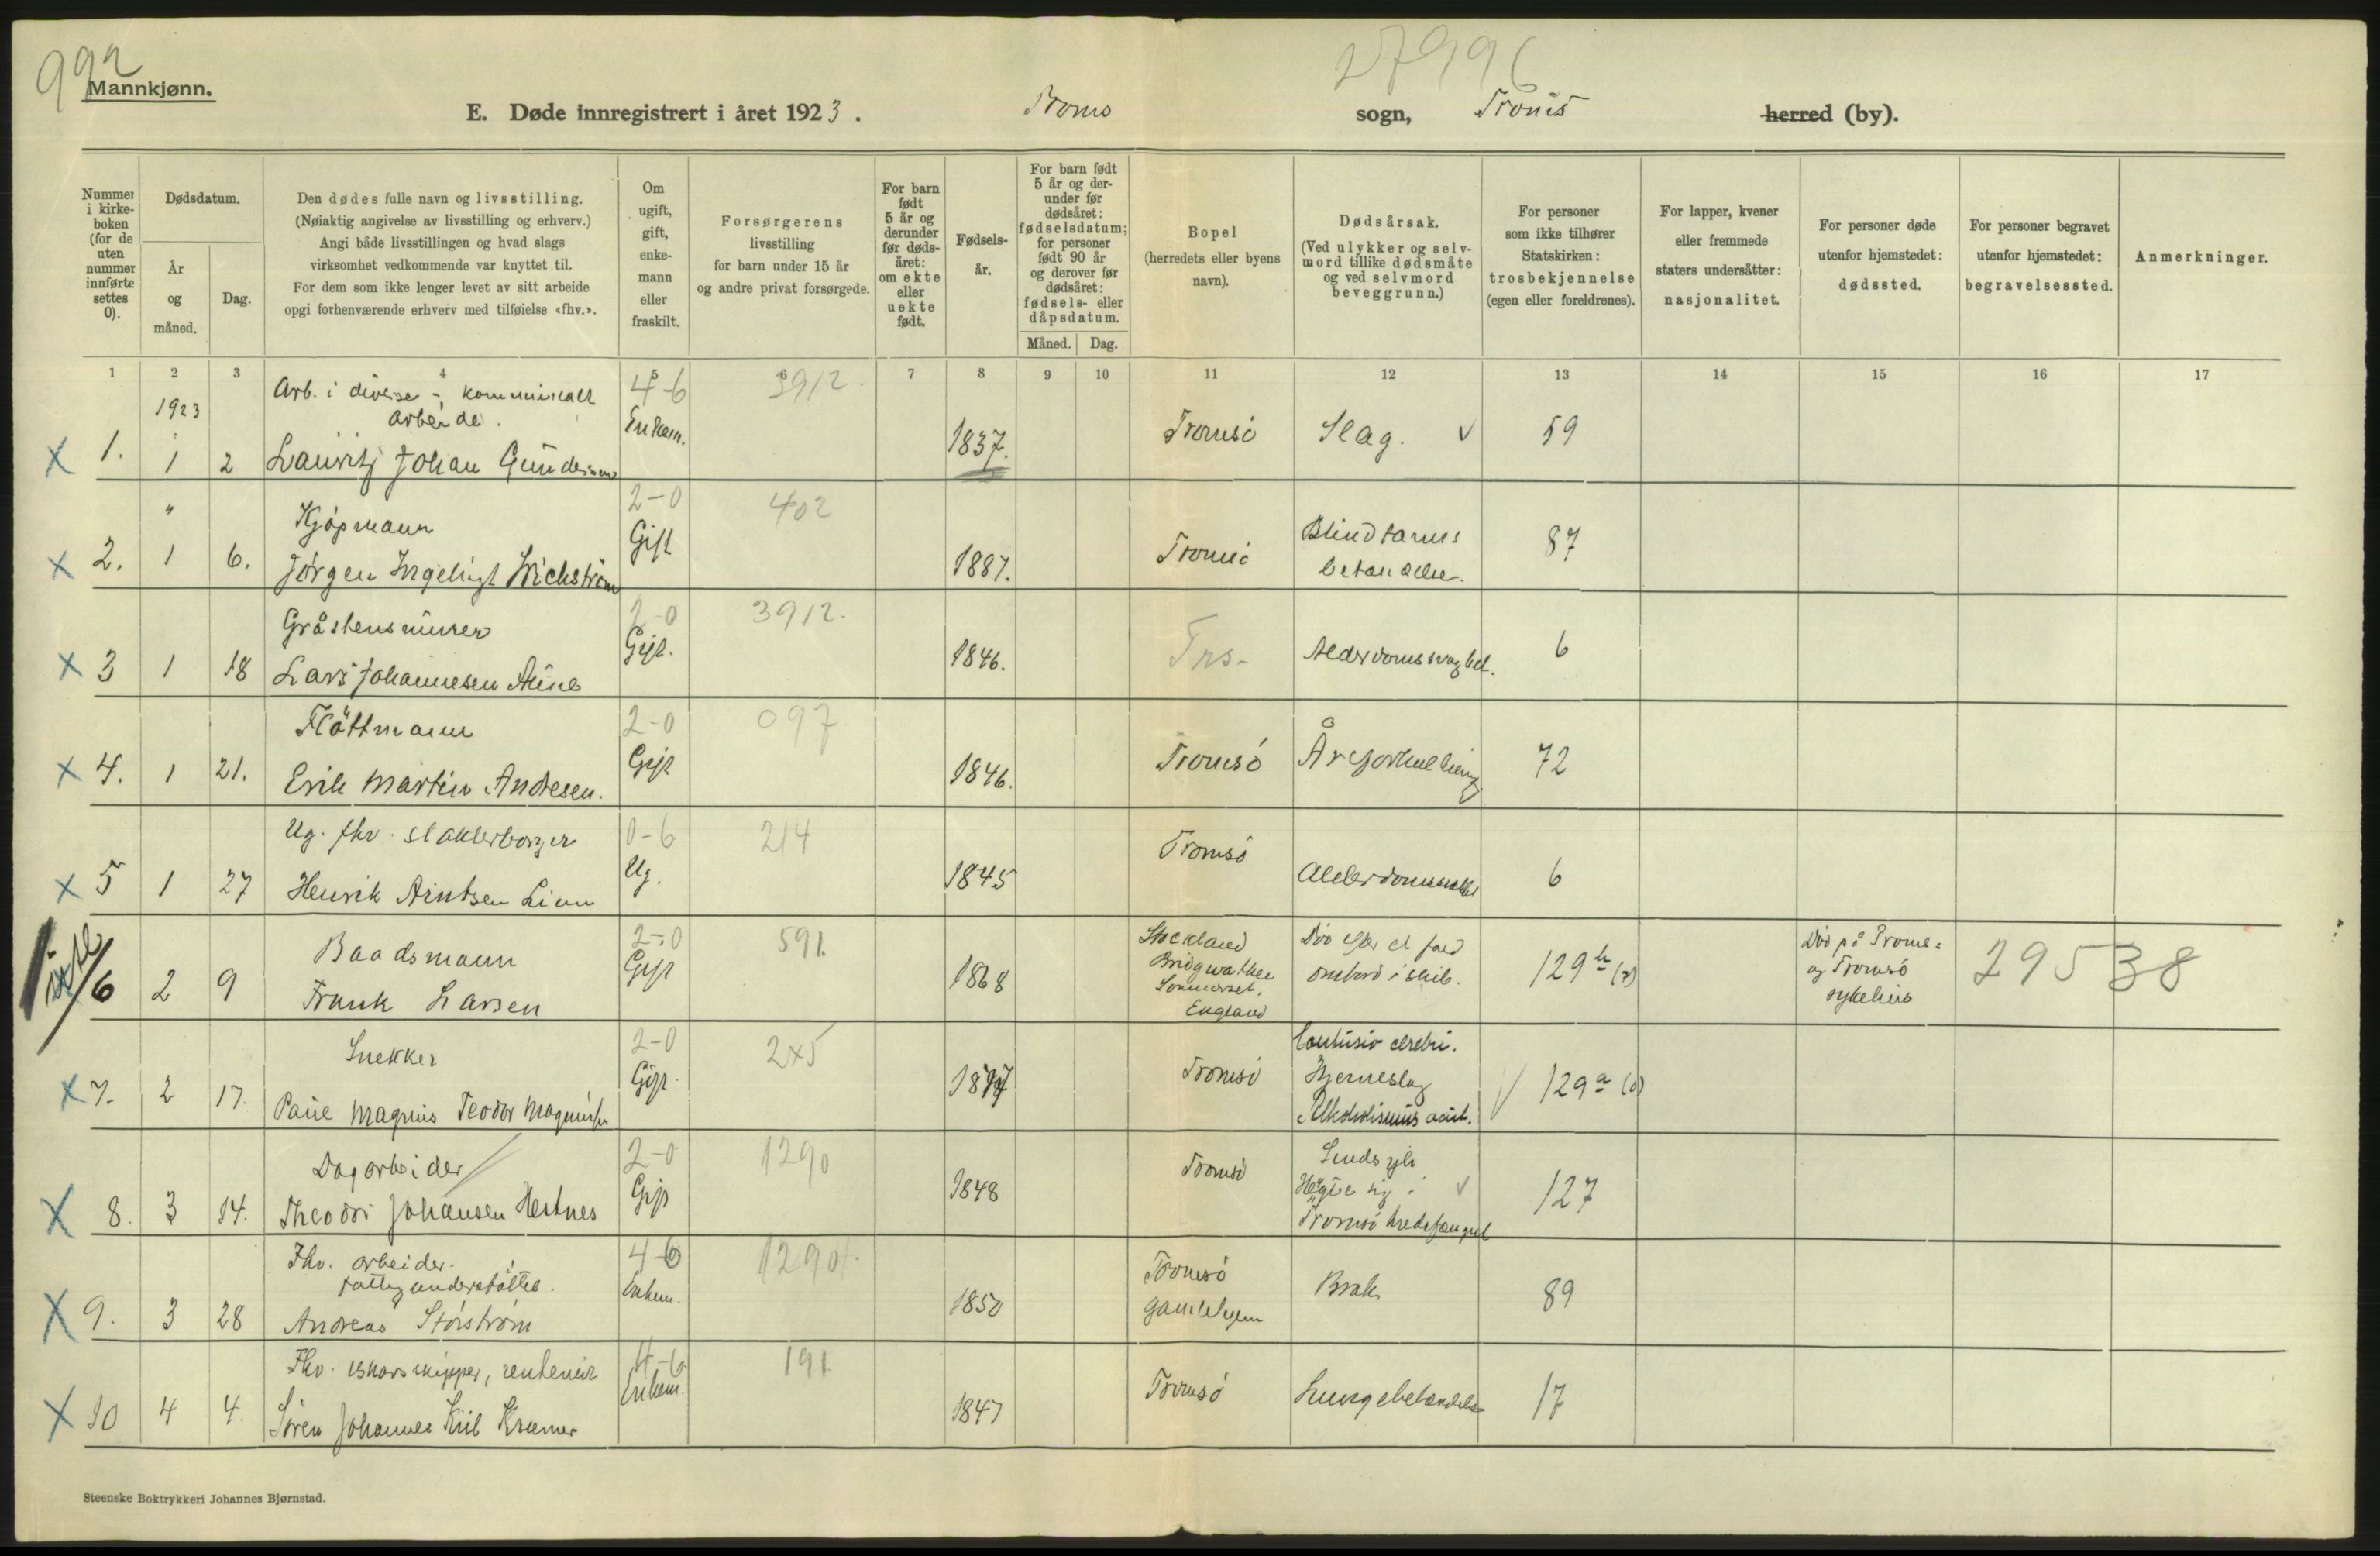 992
27996
Mannkjønn.
E. Døde innregistrert i året 1923. Troms sogn, Troms herred (by).
Nummer i kirkeboken (for de uten nummer innførte settes 0).
Dødsdatum.
År og måned.
Dag.
Den dødes fulle navn og livsstilling.
(Nøiaktig angivelse av livsstilling og erhverv.)
Angi både livsstillingen og hvad slags
virksomhet vedkommende var knyttet til.
For dem som ikke lenger levet av sitt arbeide
opgi forhenværende erhverv med tilføielse «fhv.».
Om ugift, gift, enkemann eller fraskilt.
Forsørgerens
livsstilling
for barn under 15 år
og andre privat forsørgede.
For barn født 5 år og derunder før dødsåret: om ekte eller uekte født.
Fødselsår.
For barn født 5 år og derunder før dødsåret: fødselsdatum; for personer født 90 år og derover før dødsåret: fødsels- eller dåpsdatum.
Måned. Dag.
Bopel
(herredets eller byens navn).
Dødsårsak.
(Ved ulykker og selvmord tillike dødsmåte og ved selvmord beveggrunn.)
For personer som ikke tilhører Statskirken: trosbekjennelse (egen eller foreldrenes).
For lapper, kvener eller fremmede staters undersåtter: nasjonalitet.
For personer døde utenfor hjemstedet: dødssted.
For personer begravet utenfor hjemstedet: begravelsessted.
Anmerkninger.
1 2 3 4 5 6 7 8 9 10 11 12 13 14 15 16 17
1923 Arb. i diverse kommunalt arbeide. 4-6 3912.
x 1. 1 2 Lauritz Johan Gundersen Enkem. 1837. Tromsö Slag. 59
" Kjöpmann 2-0 402
x 2. 1 6. Jörgen Wichström Gift 1887. Tromsö Blindtarmsbetændelse. 87
Gråstensmurer 2-0 3912.
x 3 1 18 Lars Johannesen Aune Gift. 1846. Trs- Alderdomssvaghet. 6
Flöttmann 2-0 097
x 4. 1 21. Erik Martin Andresen. Gift 1846. Tromsö Åreforkalkning 72
Ug. fhv. slakterborger 0-6 214
x 5 1 27 Henrik Arntsen Lium Ug. 1845 Tromsö 6
Baadsmann 2-0 591.
6 2 9 Frank Larsen Gift 1868 Stockland Bridgwather Sommerset, England Död efter et fald ombord i skib. 129 Död på Tromsö sykehus 29538
Snekker 2-0 2x5
x 7. 2 17. Magnus Teodor Gift Tromsö Contusio cerebri. Hjerneslag Alkoholismus acut. 129 a
Dagarbeider 2-0 1290
x 8. 3 14. Theodor Johansen Hestnes Gift 1848 Tromsö Sindssyk Hengte sig i Tromsö kredsfængsel 127
Fhv. arbeider. fattigunderstöttet. 4-6
x 9. 3 28 Andreas Storström Enkem. 1850 Tromsö gamlehjem Brok 89
Fhv. ishavsskipper, rentenier 4-6 191
x 10 4 4. Sören Johannes Kiil Kræmer Enkem. 1847 Tromsö Lungebetændelse 17
Steenske Boktrykkeri Johannes Bjørnstad.